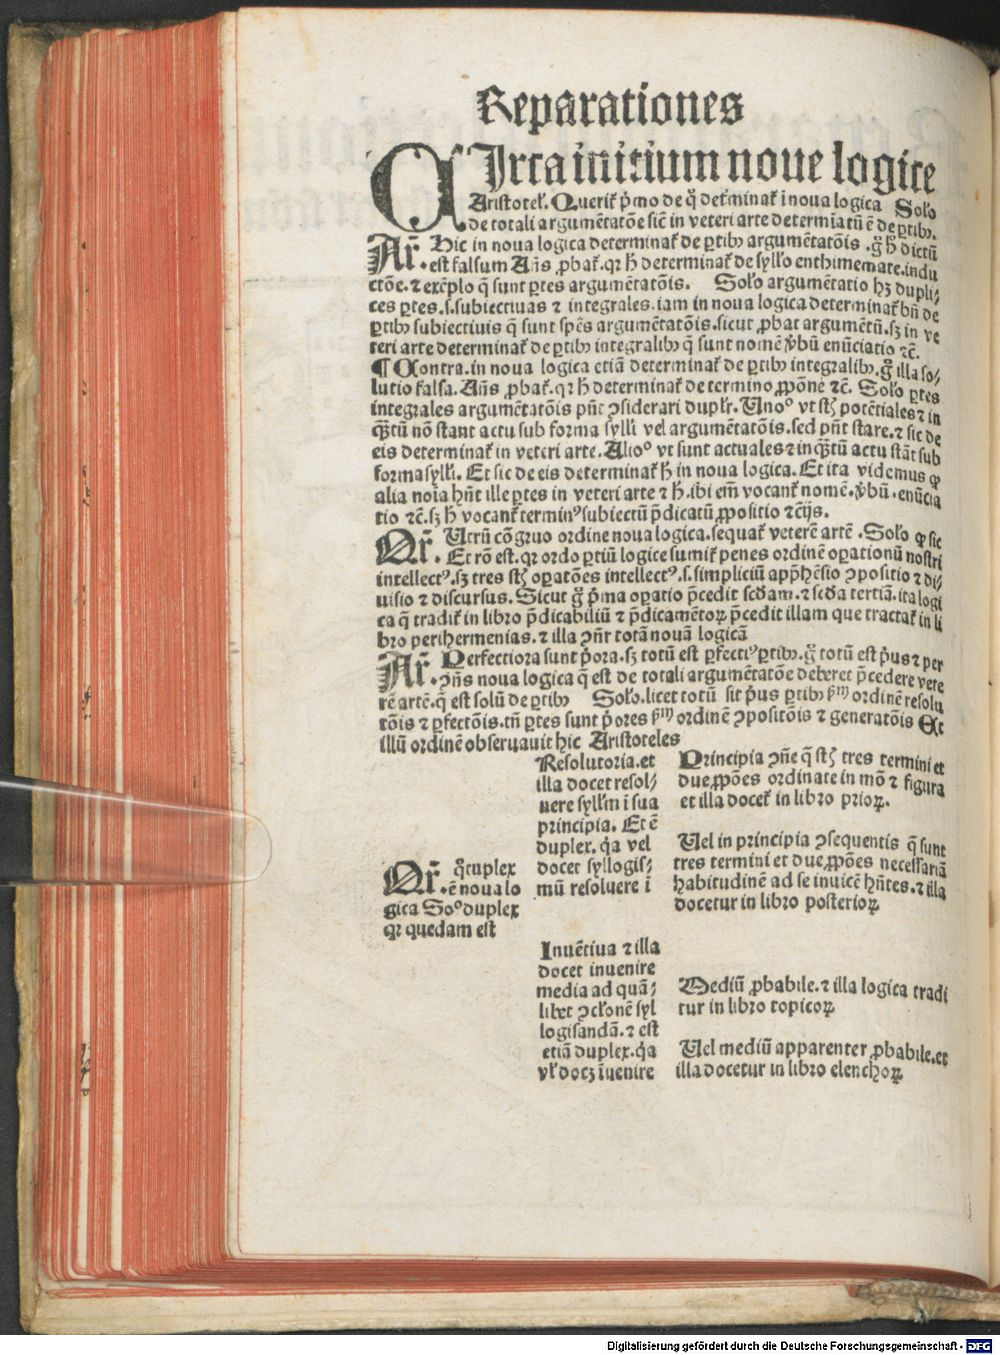 Reparationes
CIrca initium noue logice
Aristotel̕. Querit̕ p̄mo de q̊ det̕minat̕ ī noua logica Solo
de totali argumētatōe sic̄ in veteri arte determīatū ē de ꝑtibꝰ.
Ar̄. Hic in noua logica determinat̕ de ꝑtibꝰ argumētatōis. g̊ h̄ dictū
est falsum Añs ꝓbat̕. qꝛ h̄ determinat̕ de syllo enthimemate. indu
ctōe. ⁊ exēplo q̄ sunt ꝑtes argumētatōis. Solo argumētatio hꝫ dupli/
ces ꝑtes. s. subiectiuas ⁊ integrales. iam in noua logica determinat̕ bn̄ de
ꝑtibꝰ subiectiuis q̄ sunt spēs argumētatōis. sicut ꝓbat argumētū. sꝫ in ve
teri arte determinat̕ de ꝑtibꝰ integralibꝰ q̄ sunt nomē v̄bū enūciatio ⁊c̄.
¶ Contra. in noua logica etiā determinat̕ de ꝑtibꝰ integralibꝰ. g̊ illa so/
lutio falsa. Añs ꝓbat̕. qꝛ h̄ determinat̕ de termino ꝓpōne ⁊c̄. Solo ꝑtes
integrales argumētatōis pn̄t ꝯsiderari duplr̄. Unoº vt st̄ potētiales ⁊ in
qꝫtū nō stant actu sub forma sylli vel argumētatōis. sed pn̄t stare. ⁊ sic de
eis determinat̕ in veteri arte. Alioº vt sunt actuales ⁊ in qꝫtū actu stāt sub
forma sylli. Et sic de eis determinat̕ h̄ in noua logica. Et ita videmus qꝙ
alia noīa hn̄t ille ꝑtes in veteri arte ⁊ h̄. ibi em̄ vocant̕ nomē. v̄bū. enūcia
tio ⁊c̄. sꝫ h̄ vocant̕ terminꝰ subiectū p̄dicatū ꝓpositio ⁊c̄ijs.
Qr̄. Utrū cōgruo ordine noua logica. sequat̕ veterē artē. Solo qꝙ sic
Et rō est. qꝛ ordo ꝑtiū logice sumit̕ penes ordinē oꝑationū nostri
intellectꝰ. sꝫ tres st̄ oꝑatōes intellectꝰ. s. simpliciū app̄hēsio ꝯpositio ⁊ di/
uisio ⁊ discursus. Sicut g̊ p̄ma oꝑatio p̄cedit scd̄am. ⁊ scd̄a tertiā. ita logi
ca q̄ tradit̕ in libro p̄dicabiliū ⁊ p̄dicamētoꝝ p̄cedit illam que tractat̕ in li
bro perihermenias. ⁊ illa ꝯn̄r totā nouā logicā
Ar̄. Perfectiora sunt p̄ora. sꝫ totū est ꝑfectiꝰ ꝑtibꝰ. g̊ totū est p̄us ⁊ per
ꝯn̄s noua logica q̄ est de totali argumētatōe deberet p̄cedere vete
rē artē. q̄ est solū de ꝑtibꝰ Solo. licet totū sit p̄us ꝑtibꝰ ẜm ordinē resolu
tōis ⁊ ꝑfectōis. tn̄ ꝑtes sunt p̄ores ẜm ordinē ꝯpositōis ⁊ generatōis Et
illū ordinē obseruauit hic Aristoteles
Qr̄. q̊tuplex
ē noua lo
gica Soº duplex
qꝛ quedam est
Resolutoria. et
illa docet resol/
uere syllm̄ ī sua
principia. Et ē
duplex. q̇a vel
docet syllogis/
mū resoluere ī
Principia ꝯn̄e q̄ st̄ tres termini et
due ꝓpōes ordinate in mō ⁊ figura
et illa docet̕ in libro prioꝝ.
Uel in principia ꝯsequentis q̄ sunt
tres termini et due ꝓpōes necessariā
habitudinē ad se inuicē hn̄tes. ⁊ illa
docetur in libro posterioꝝ
Inuētiua ⁊ illa
docet inuenire
media ad quā/
libet ꝯclōnē syl
logisandā. ⁊ est
etiā duplex. q̇a
vl̕ docꝫ īuenire
Mediū ꝓbabile. ⁊ illa logica tradi
tur in libro topicoꝝ
Uel mediū apparenter ꝓbabile. et
illa docetur in libro elenchoꝝ
Digitalisierung gefördert durch die Deutsche Forschungsgemeinschaft - DFG